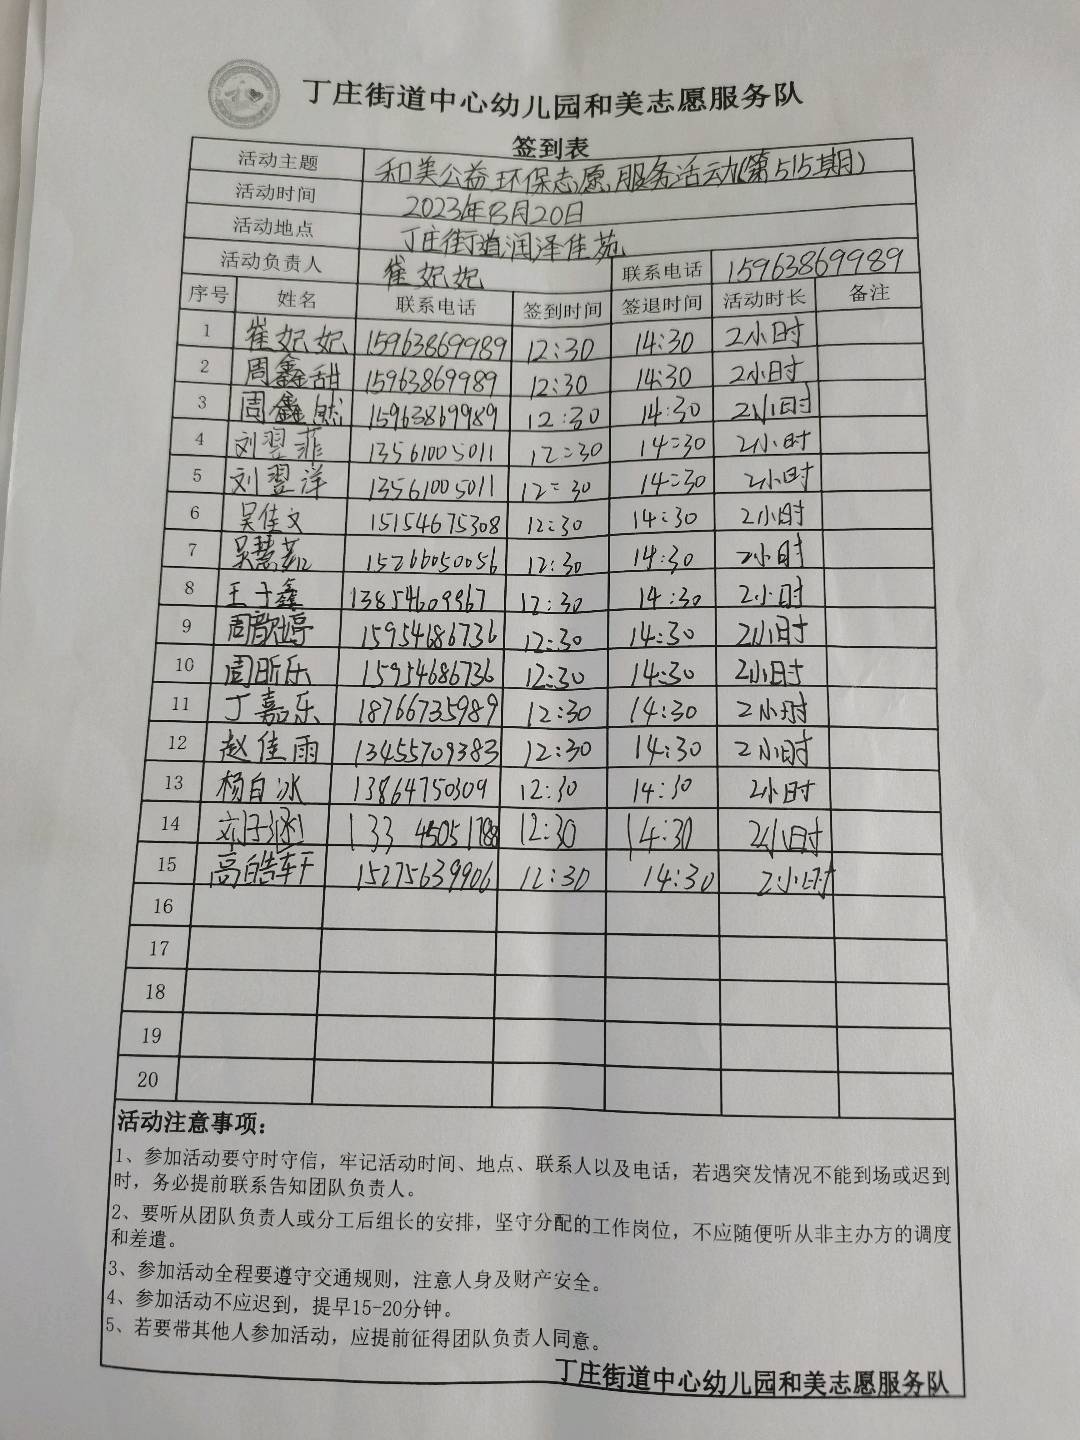 丁庄街道中心幼儿园和美志愿服务队
签到表
活动主题 和美公益环保志愿服务活动(第515期)
活动时间 2023年8月20日
活动地点 丁庄街道润泽佳苑
活动负责人 崔妃妃 联系电话 15963869989
序号 姓名 联系电话 签到时间 签退时间 活动时长 备注
1 崔妃妃 15963869989 12:30 14:30 2小时
2 周鑫甜 15963869989 12:30 14:30 2小时
3 周鑫然 15963869989 12:30 14:30 2小时
4 刘翌菲 13561005011 12:30 14:30 2小时
5 刘翌洋 13561005011 12:30 14:30 2小时
6 吴佳文 15154675308 12:30 14:30 2小时
7 吴慧 15266050056 12:30 14:30 2小时
8 王子鑫 13854609967 12:30 14:30 2小时
9 周歆婷 15954686736 12:30 14:30 2小时
10 周昕乐 15954686736 12:30 14:30 2小时
11 丁嘉乐 18766735989 12:30 14:30 2小时
12 赵佳雨 13455709383 12:30 14:30 2小时
13 杨自冰 13864750309 12:30 14:30 2小时
14 刘子涵 133 45051788 12:30 14:30 2小时
15 高皓轩 15275639906 12:30 14:30 2小时
16
17
18
19
20
活动注意事项：
1、参加活动要守时守信，牢记活动时间、地点、联系人以及电话，若遇突发情况不能到场或迟到
时，务必提前联系告知团队负责人。
2、要听从团队负责人或分工后组长的安排，坚守分配的工作岗位，不应随便听从非主办方的调度
和差遣。
3、参加活动全程要遵守交通规则，注意人身及财产安全。
4、参加活动不应迟到，提早15-20分钟。
5、若要带其他人参加活动，应提前征得团队负责人同意。
丁庄街道中心幼儿园和美志愿服务队